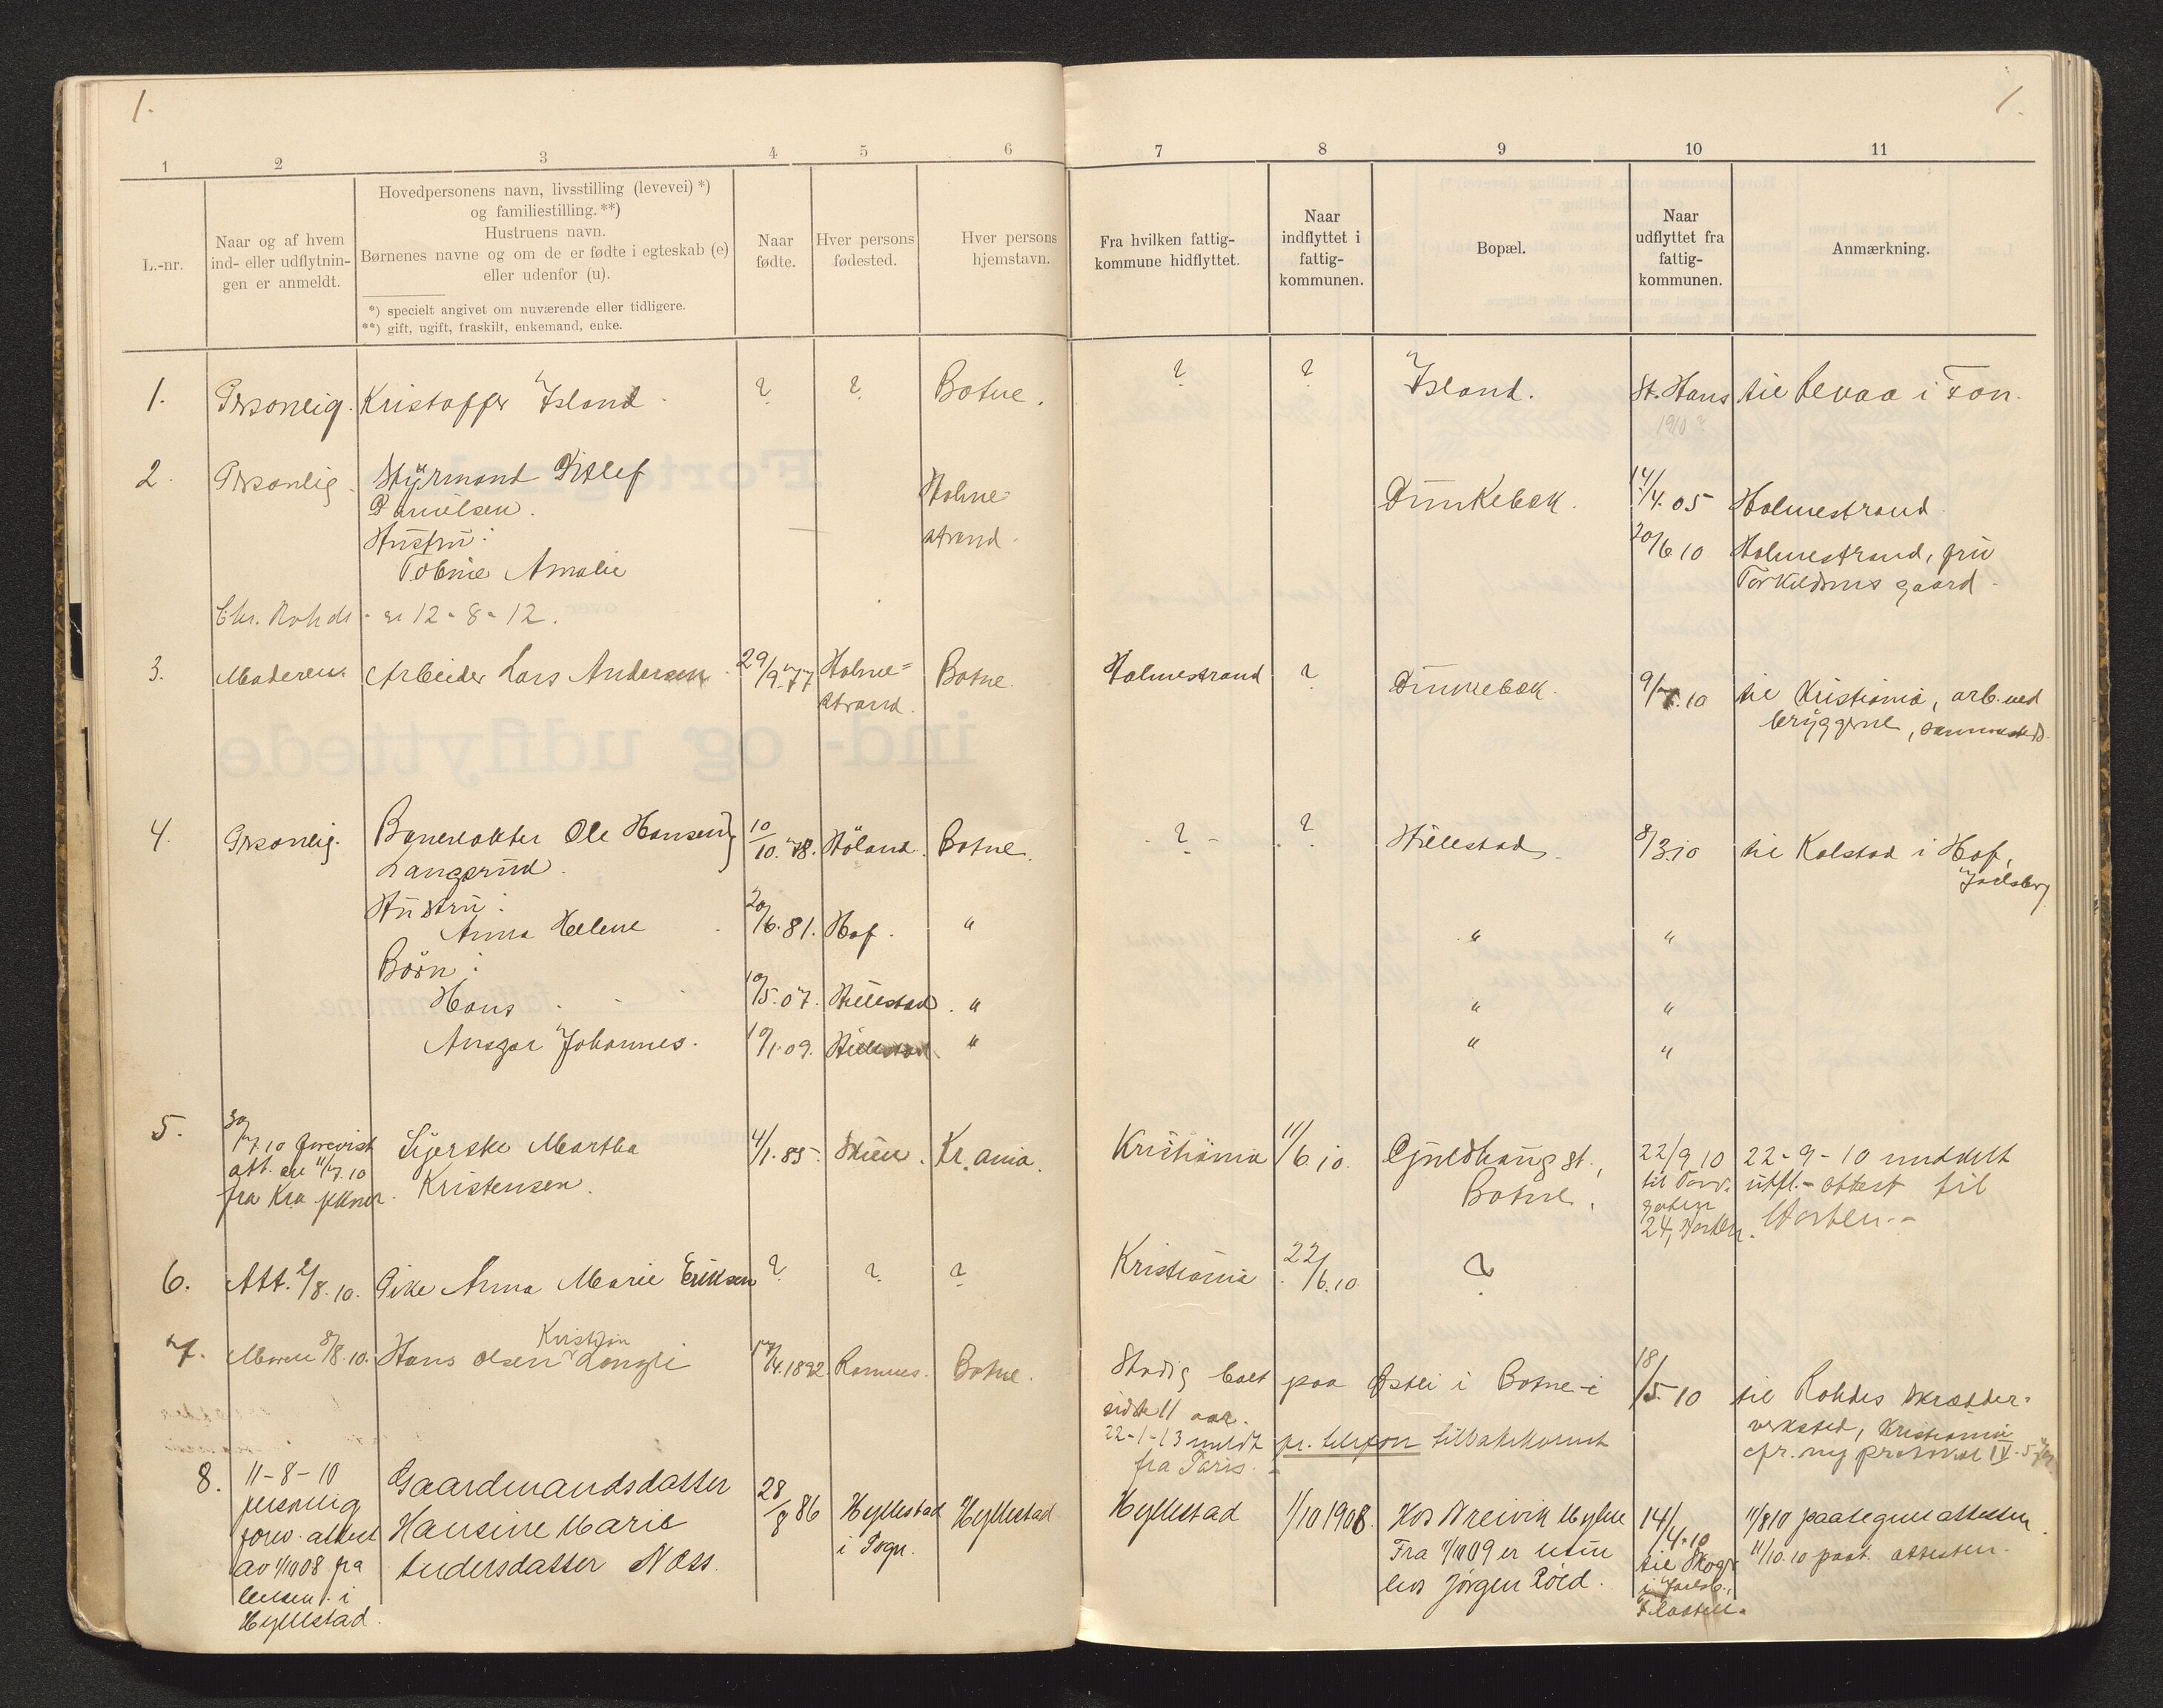 1.
1.
1 2 3 4 5 6 7 8 9 10 11
L.-nr.
Naar og af hvem
ind- eller udflytnin-
gen er anmeldt.
Hovedpersonens navn, livsstilling (levevei) *)
og familiestilling. **)
Hustruens navn.
Børnenes navne og om de er fødte i egteskab (e)
eller udenfor (u).
*) specielt angivet om nuværende eller tidligere.
**) gift, ugift, fraskilt, enkemand, enke.
Naar
fødte.
Hver persons
fødested.
Hver persons
hjemstavn.
Fra hvilken fattig-
kommune hidflyttet.
Naar
indflyttet i
fattig-
kommunen.
Bopæl.
Naar
udflyttet fra
fattig-
kommunen.
Anmærkning.
1. Personlig. Kristoffer Island. ? ? Botne. ? ? Island. St. Hans til Revaa i Fon.
1910?
2. Personlig. Styrmand Ditlef
Danielsen.
Hustru:
Tobine Amalie
Holme
strand.
Dunkebæk. 14/4.05 Holmestrand
20/6 10 Holmestrand, fru
Torkildsens gaard.
Chr. Rohde - er 12-8-12.
3. Moderen. Arbeider Lars Andersen 29/9.77 Holme=
strand.
Botne. Holmestrand ? Dunkebæk. 9/7.10 til Kristiania, arb. ved
bryggerne, sammesteds.
4. Personlig. Banevokter Ole Hansen
Langerud.
10/10.78. Høland. Botne. - ? - ? Hillestad. 8/3.10 til Kolstad i Hof,
Jarlsberg
Hustru:
Anna Helene 20/6.81. Hof. " " "
Börn:
Hans 10/5.07. Hillestad. " " "
Ansgar Johannes. 19/1.09. Hillestad. " " "
5. 30/7.10 forevist
att. av 11/7.10
fra Kra
Sygerske Martha
Kristensen.
4/1.85. Skien. Kr.ania. Kristiania 11/6.10. Gjuldhaug st.,
Botne.
22/9 10
til Torv-
gaten
24, Horten.
22-9-10 meddelt
utfl.-attest til
Horten.-
6. Att. 2/8.10. Pike Anna Marie Eriksen ? ? ? Kristiania 22/6.10 ?
7. Moren 8/8.10. Hans Olsen Kristian Langli 17/4.1892. Ramnes. Botne.
Stadig boet paa Østli i Botne i
sidste 11 aar.
22-1-13 meldt pr. telefon tilbakekomst
fra Paris.
18/5.10 til Rohdes skrædder-
verksted, Kristiania
cfr. ny protokol IV.
8. 11-8-10
personlig
forev. attest
av 1/10 08 fra
lensm. i
Hyllestad.
Gaardmandsdatter
Hansine Marie
Andersdatter Ness.
28/8 86 Hyllestad
i Sogn.
Hyllestad Hyllestad 1/10 1908. Hos Dreivik
Fra 1/10 09 er
hos Jørgen Röed.
14/4.10
til Skoger
i Jarlsb.,
11/8 10 paategnet attesten.
11/10.10 paat. attesten.